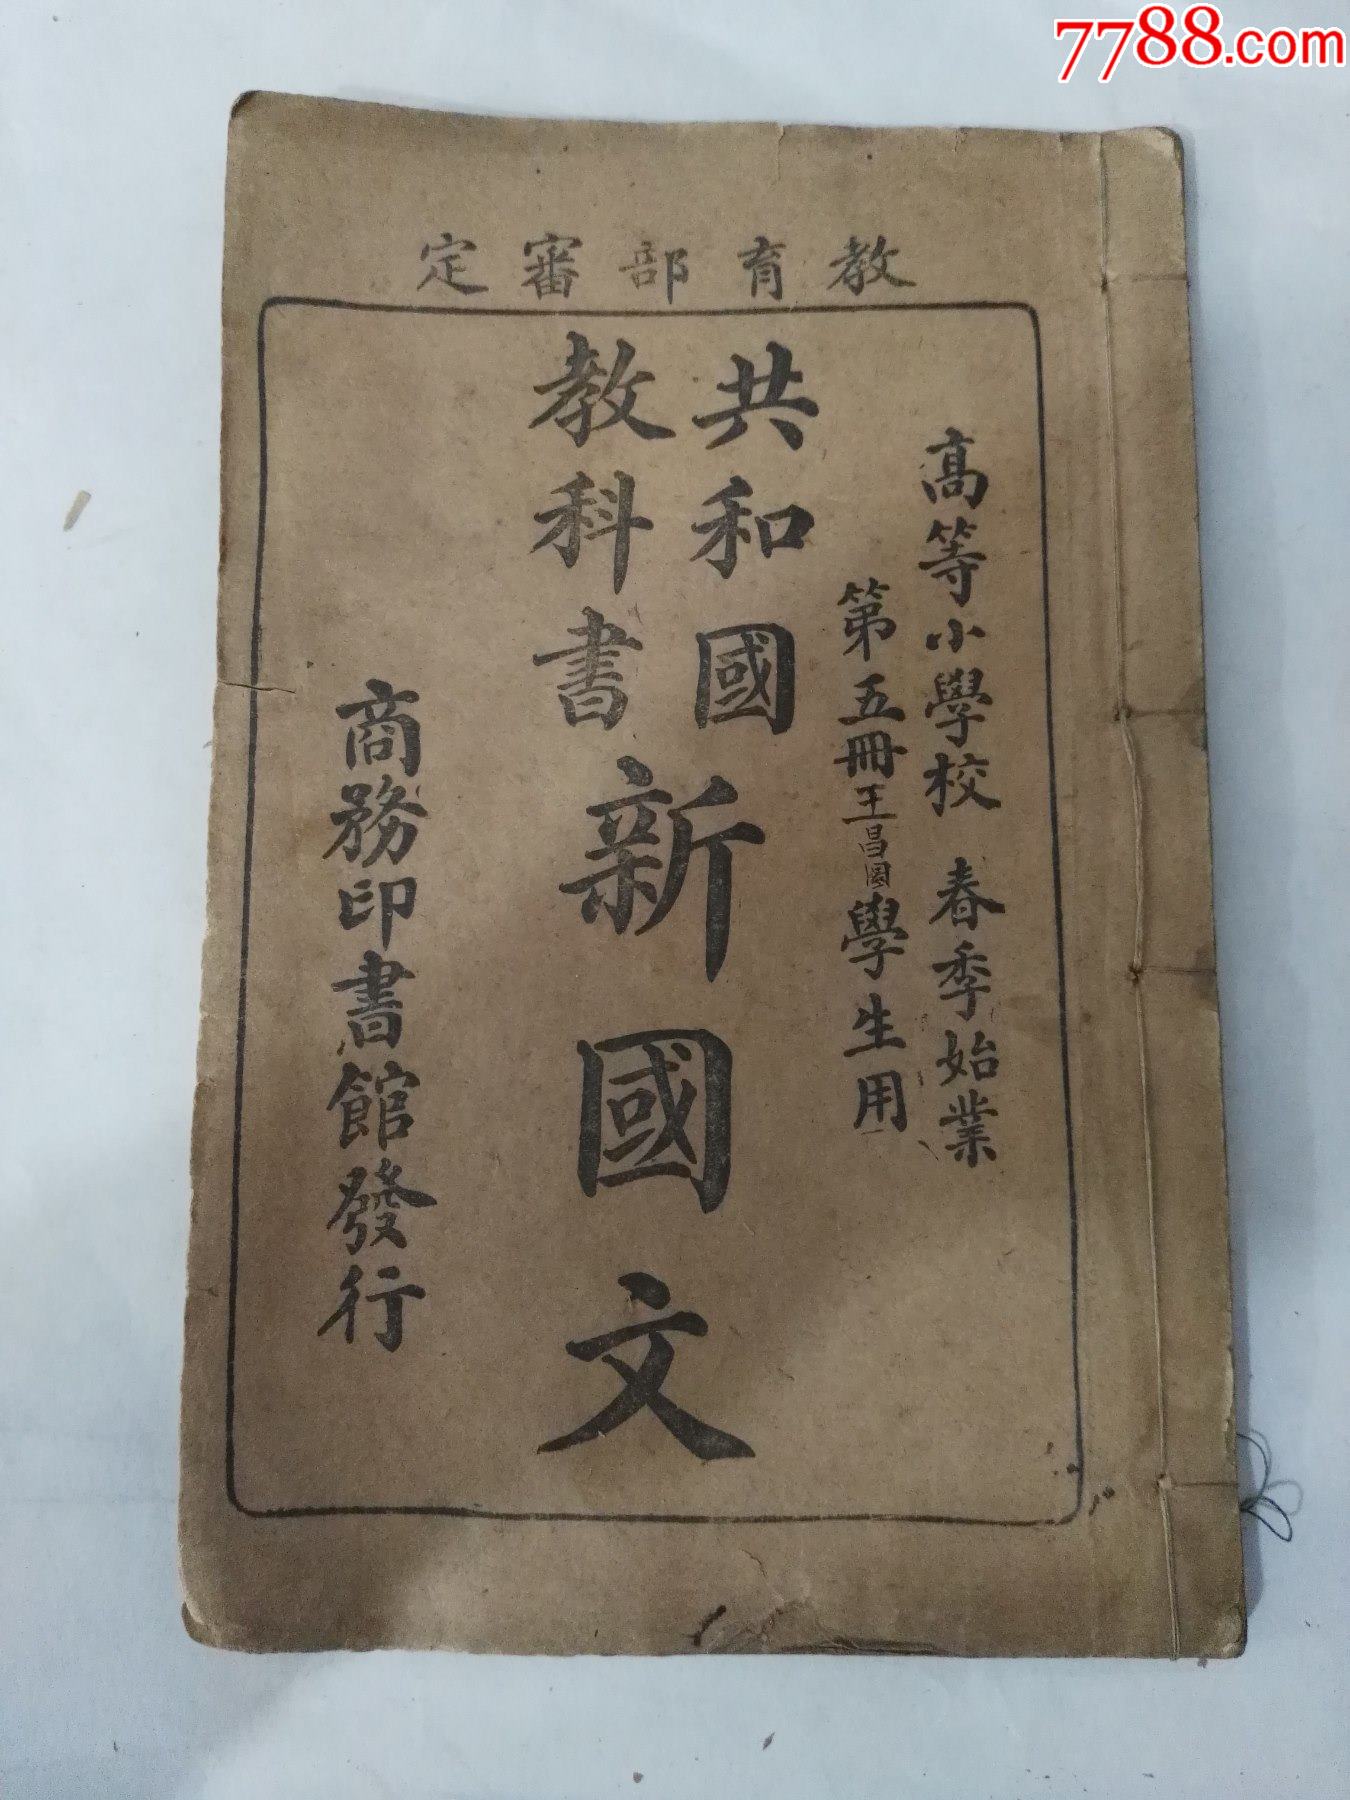 7788.com
教育部審定
高等小學校 春季始業
第五冊王昌学生用
共和國
教科書
新國文
商務印書館發行